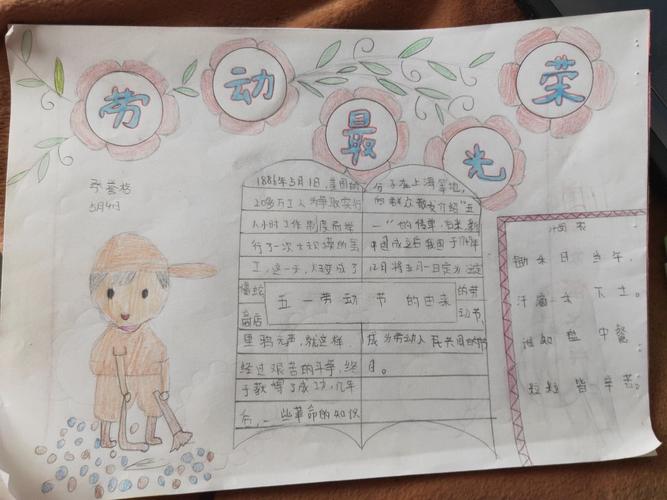 劳动最光荣
5月4日
1886年5月1日,美国的
20多万工人为争取实行
八小时工作制度而举
行了一次大规模的罢
工,这一天,火车成了
爬蛇
商店
里鸦
经过艰苦的斗争,终
于获得了成功,几年
后,一些革命的知识
分子在上海等地,
向群众散发介绍“五
一”的传单,后来,新
中国成立后我国于1949年
12月将五月一日定为法定
的劳
动节,
成为劳动人民共同的节
日。
五一劳动节的由来
锄禾日当午,
汗滴禾下土。
谁知盘中餐
粒粒皆辛苦。